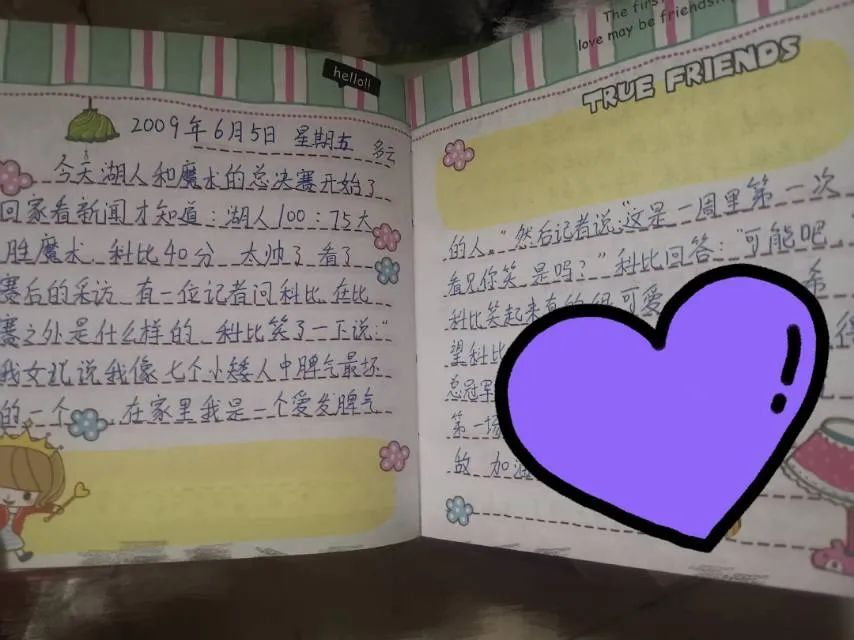 hello!!
2009年6月5日 星期五 多云
今天湖人和魔术的总决赛开始了
回家看新闻才知道:湖人100:75大
胜魔术 科比40分 太帅了 看了
赛后的采访 有一位记者问科比 在比
赛之外是什么样的 科比笑了一下说:"
我女儿说我像七个小矮人中脾气最坏
的一个 在家里我是一个爱发脾气
The first
love may be friendsh
TRUE FRIENDS
的人。"然后记者说:"这是一周里第一次
看见你笑 是吗?"科比回答:"可能吧"
科比笑起来真的很可爱 希
望科比 得
总冠军
第一场
做 加油